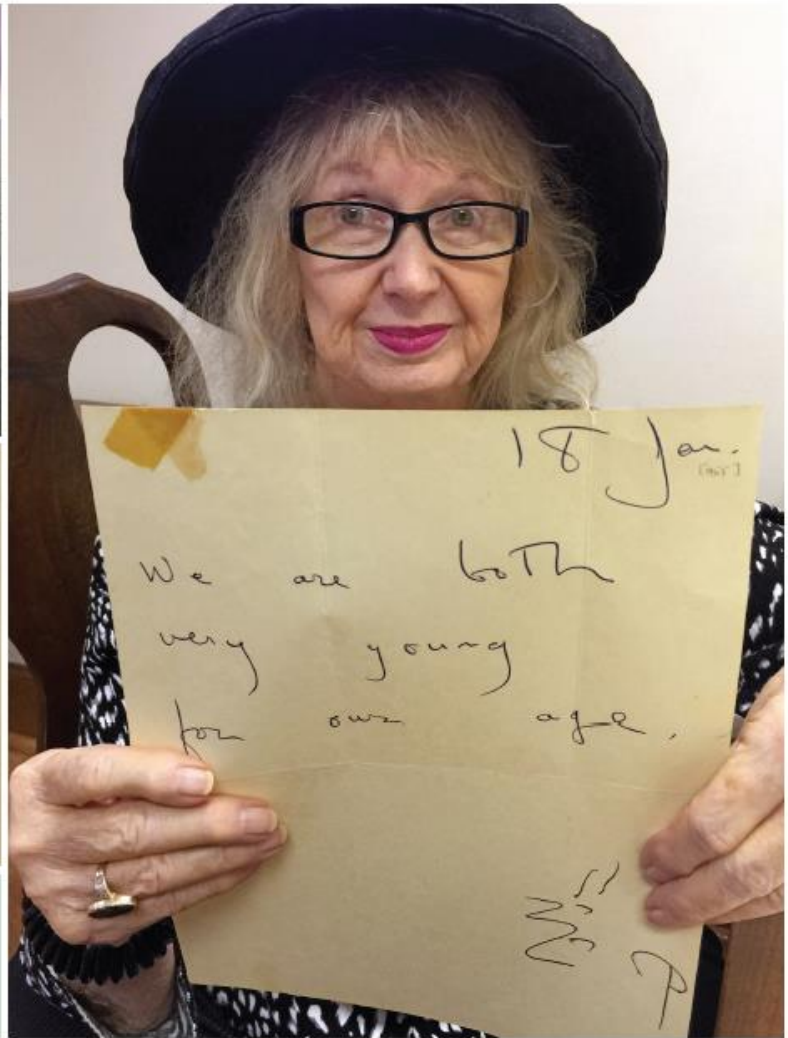 18 Jan.
We are both
very young
for our age.
P